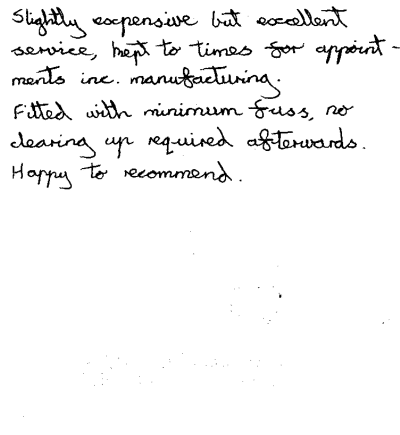 Slightly expensive but excellent
service, kept to times for appoint-
ments inc. manufacturing.
Fitted with minimum fuss, no
clearing up required afterwards.
Happy to recommend.